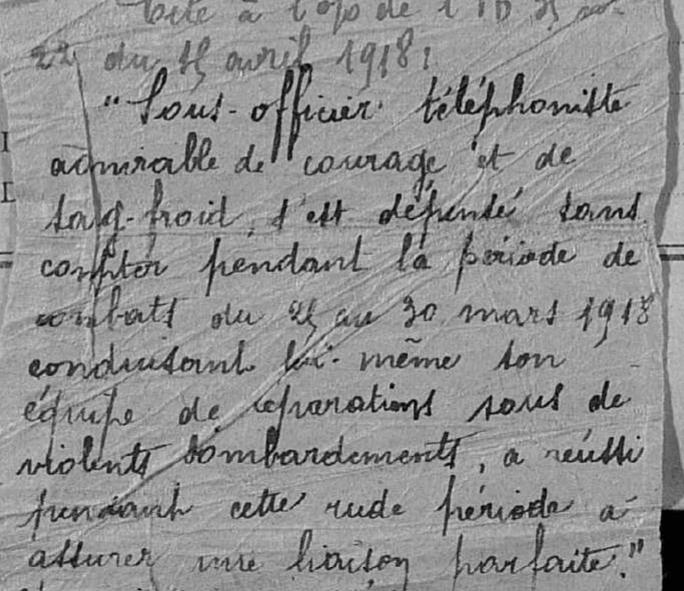 Cité à l'o/s de l'ID 
22 du 15 avril 1918:
"Sous-officier téléphoniste
admirable de courage et de
sang-froid, s'est dépensé sans
compter pendant la période de
combats du 25 au 30 mars 1918
conduisant lui-même son
équipe de réparations sous de
violents bombardements, a réussi
pendant cette rude période à
assurer une liaison parfaite."